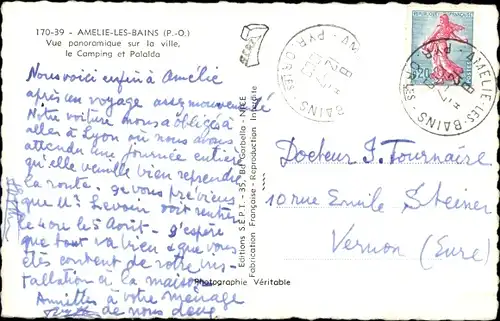 170-39 - AMELIE-LES-BAINS (P.-O.)
Vue panoramique sur la ville,
le Camping et Palalda
Nous voici enfin à Amélie
après un voyage assez mouvementé
Notre voiture nous a obligés à
aller à Lyon où nous avons
attendu une journée entière
qu'elle veuille bien reprendre
la route. Je vous préviens
que Mr Levain doit rentrer
le 4 ou le 5 Août - J'espère
que tout va bien & que vous
êtes content de votre ins-
tallation à la maison
Amitiés à votre ménage
de nous deux
Editions S.E.P.T. - 35, Bd Gorbella - NICE
Fabrication Française - Reproduction Interdite
Photographie Véritable
REPUBLIQUE FRANÇAISE
0,20
POSTES
AMELIE-LES-BAINS
PYR. ORLES
Docteur J. Tournaire
10 rue Emile Steiner
Vernon (Eure)